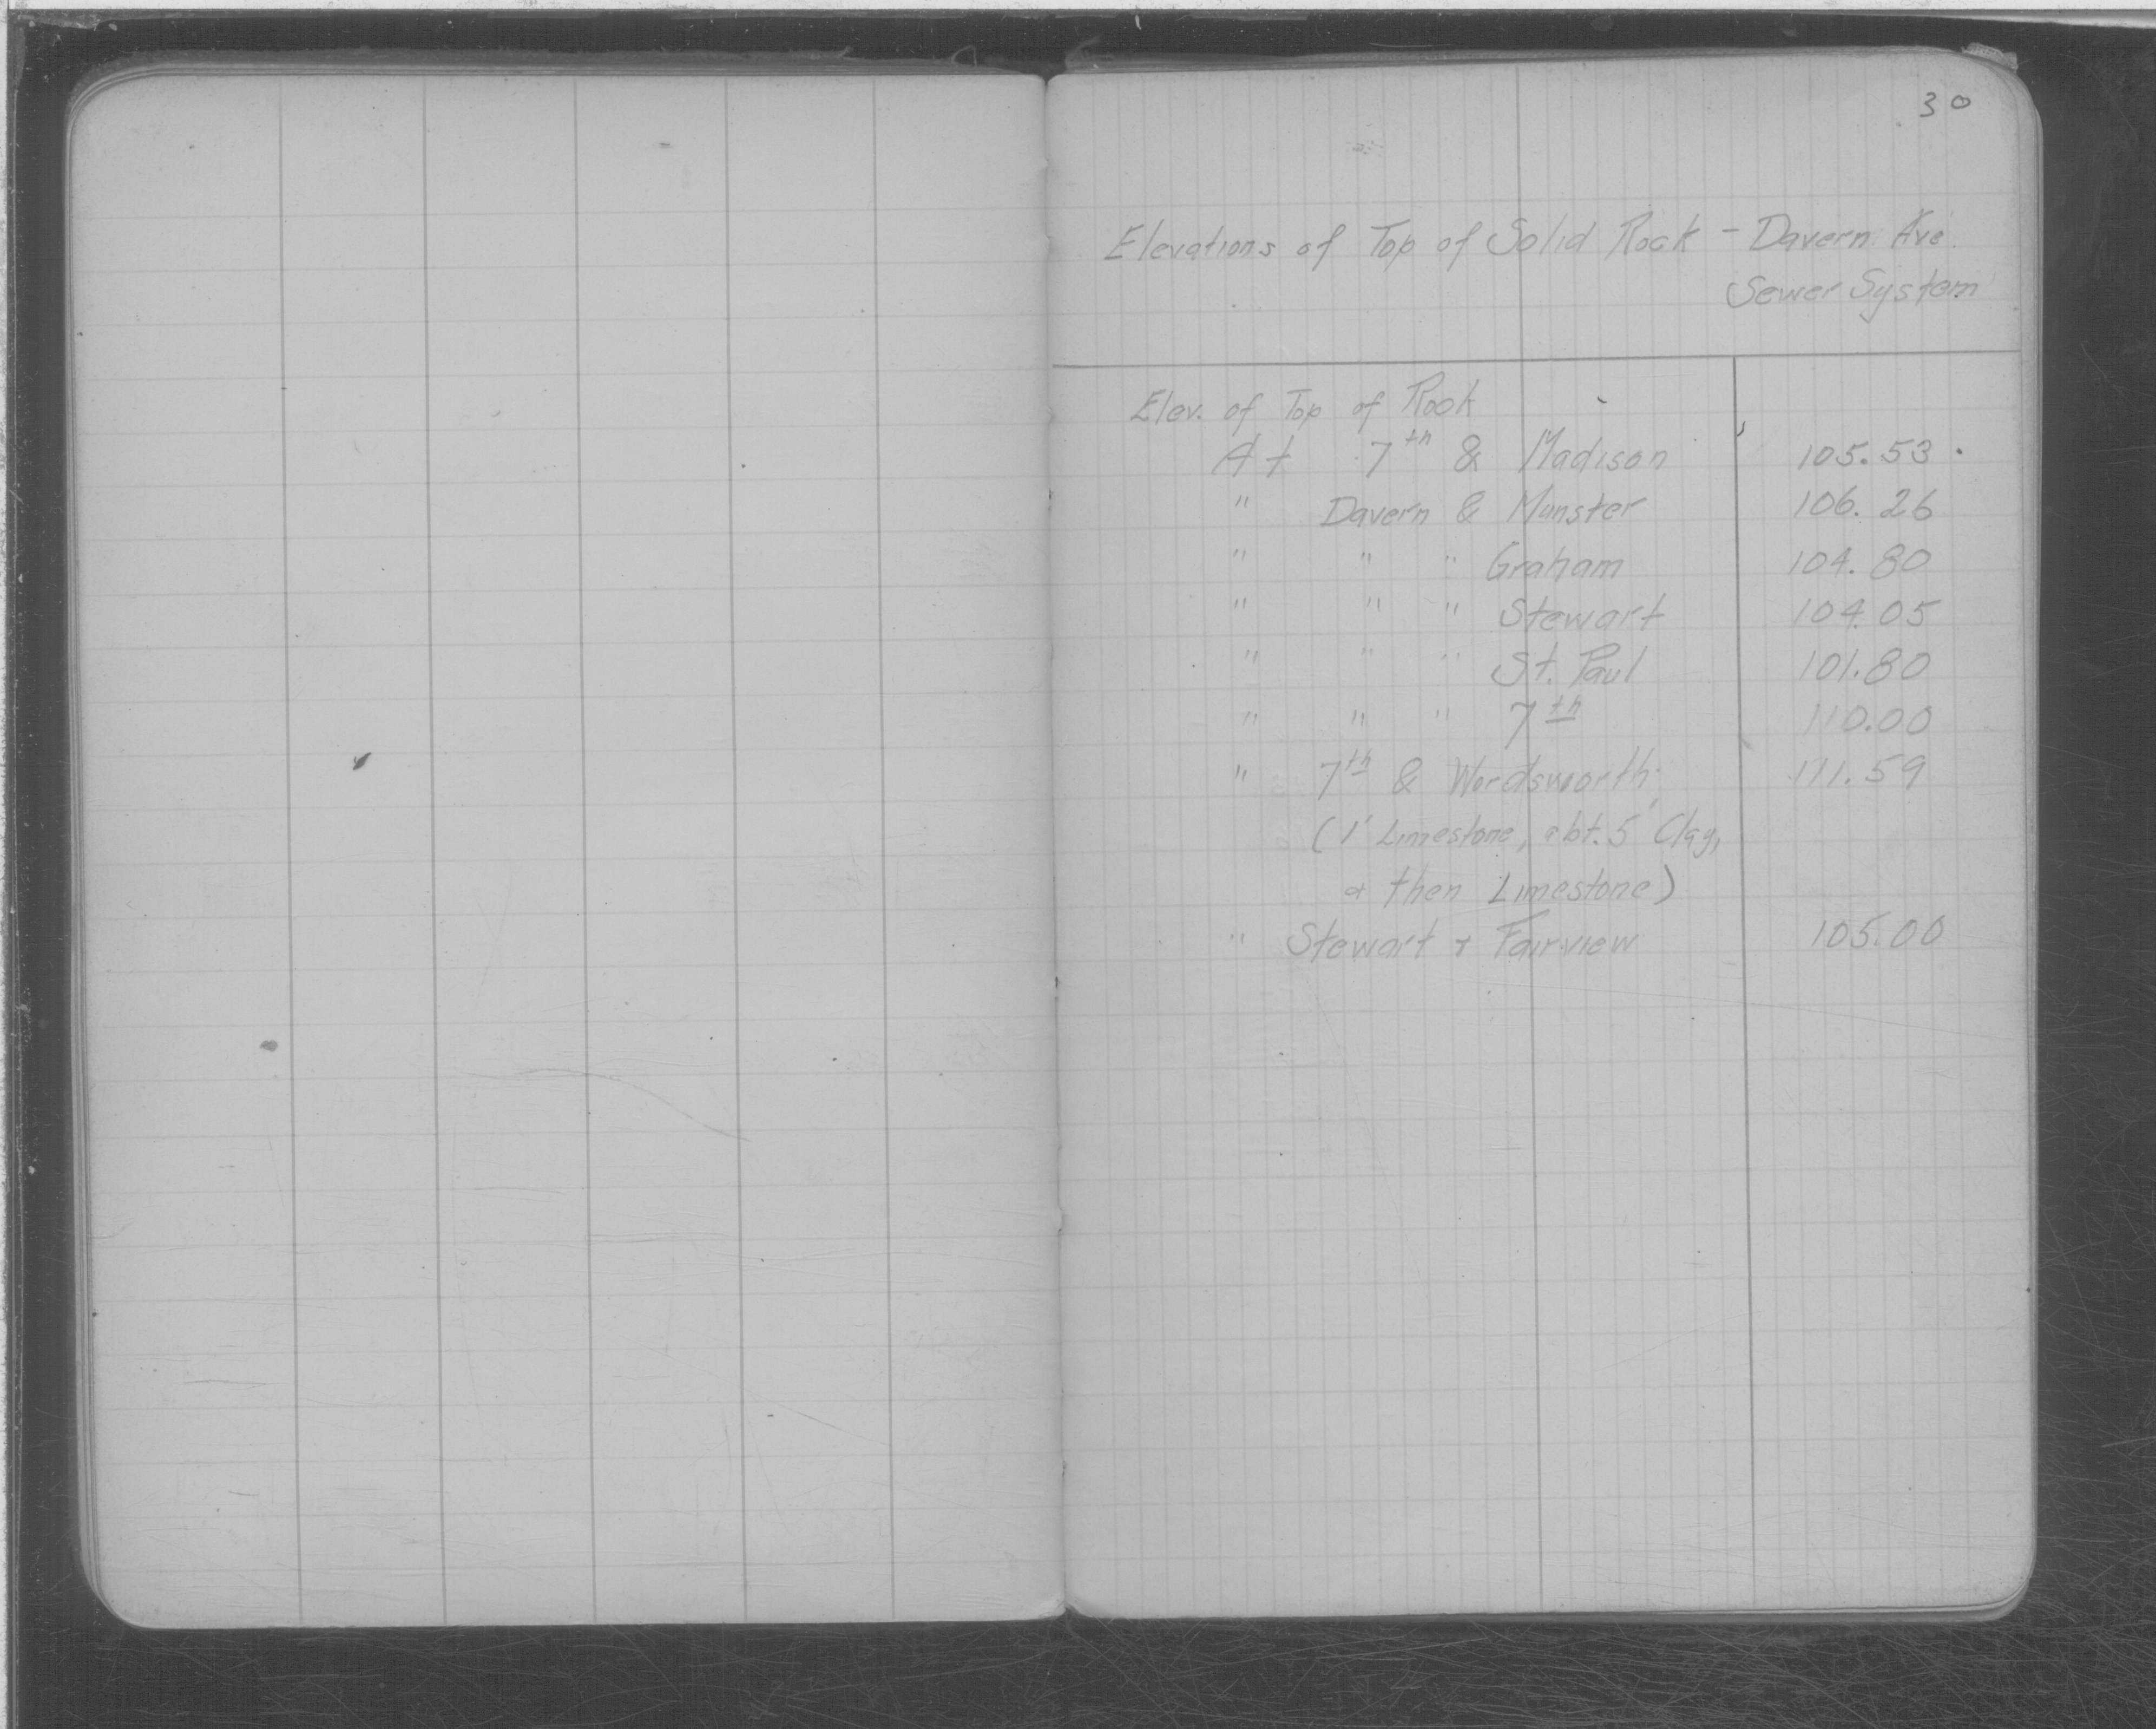 30
Elevations of Top of Solid Rock - Davern Ave.
Sewer System
Elev. of Top of Rock
At 7th & Madison 105.53
" Davern & Munster 106.26
" " " Graham 104.80
" " " Stewart 104.05
" " " St. Paul 101.80
" " " 7th 110.00
" 7th & Wordsworth 111.59
(1' Limestone, abt. 5' Clay,
& then Limestone)
" Stewart & Fairview 105.00